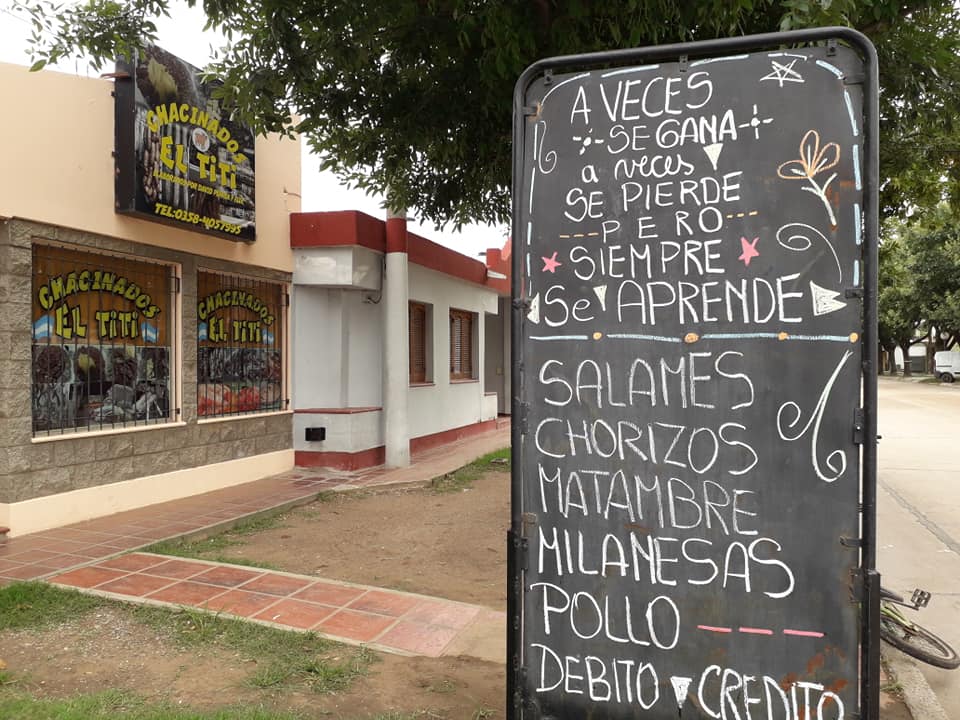 CHACINADOS
EL TiTi
TEL:0358-4057995
CHACINADOS
EL TiTi
CHACINADOS
EL TiTi
A VECES
SE GANA
a veces
SE PIERDE
PERO
SIEMPRE
Se APRENDE
SALAMES
CHORIZOS
MATAMBRE
MILANESAS
POLLO
DEBITO CREDITO